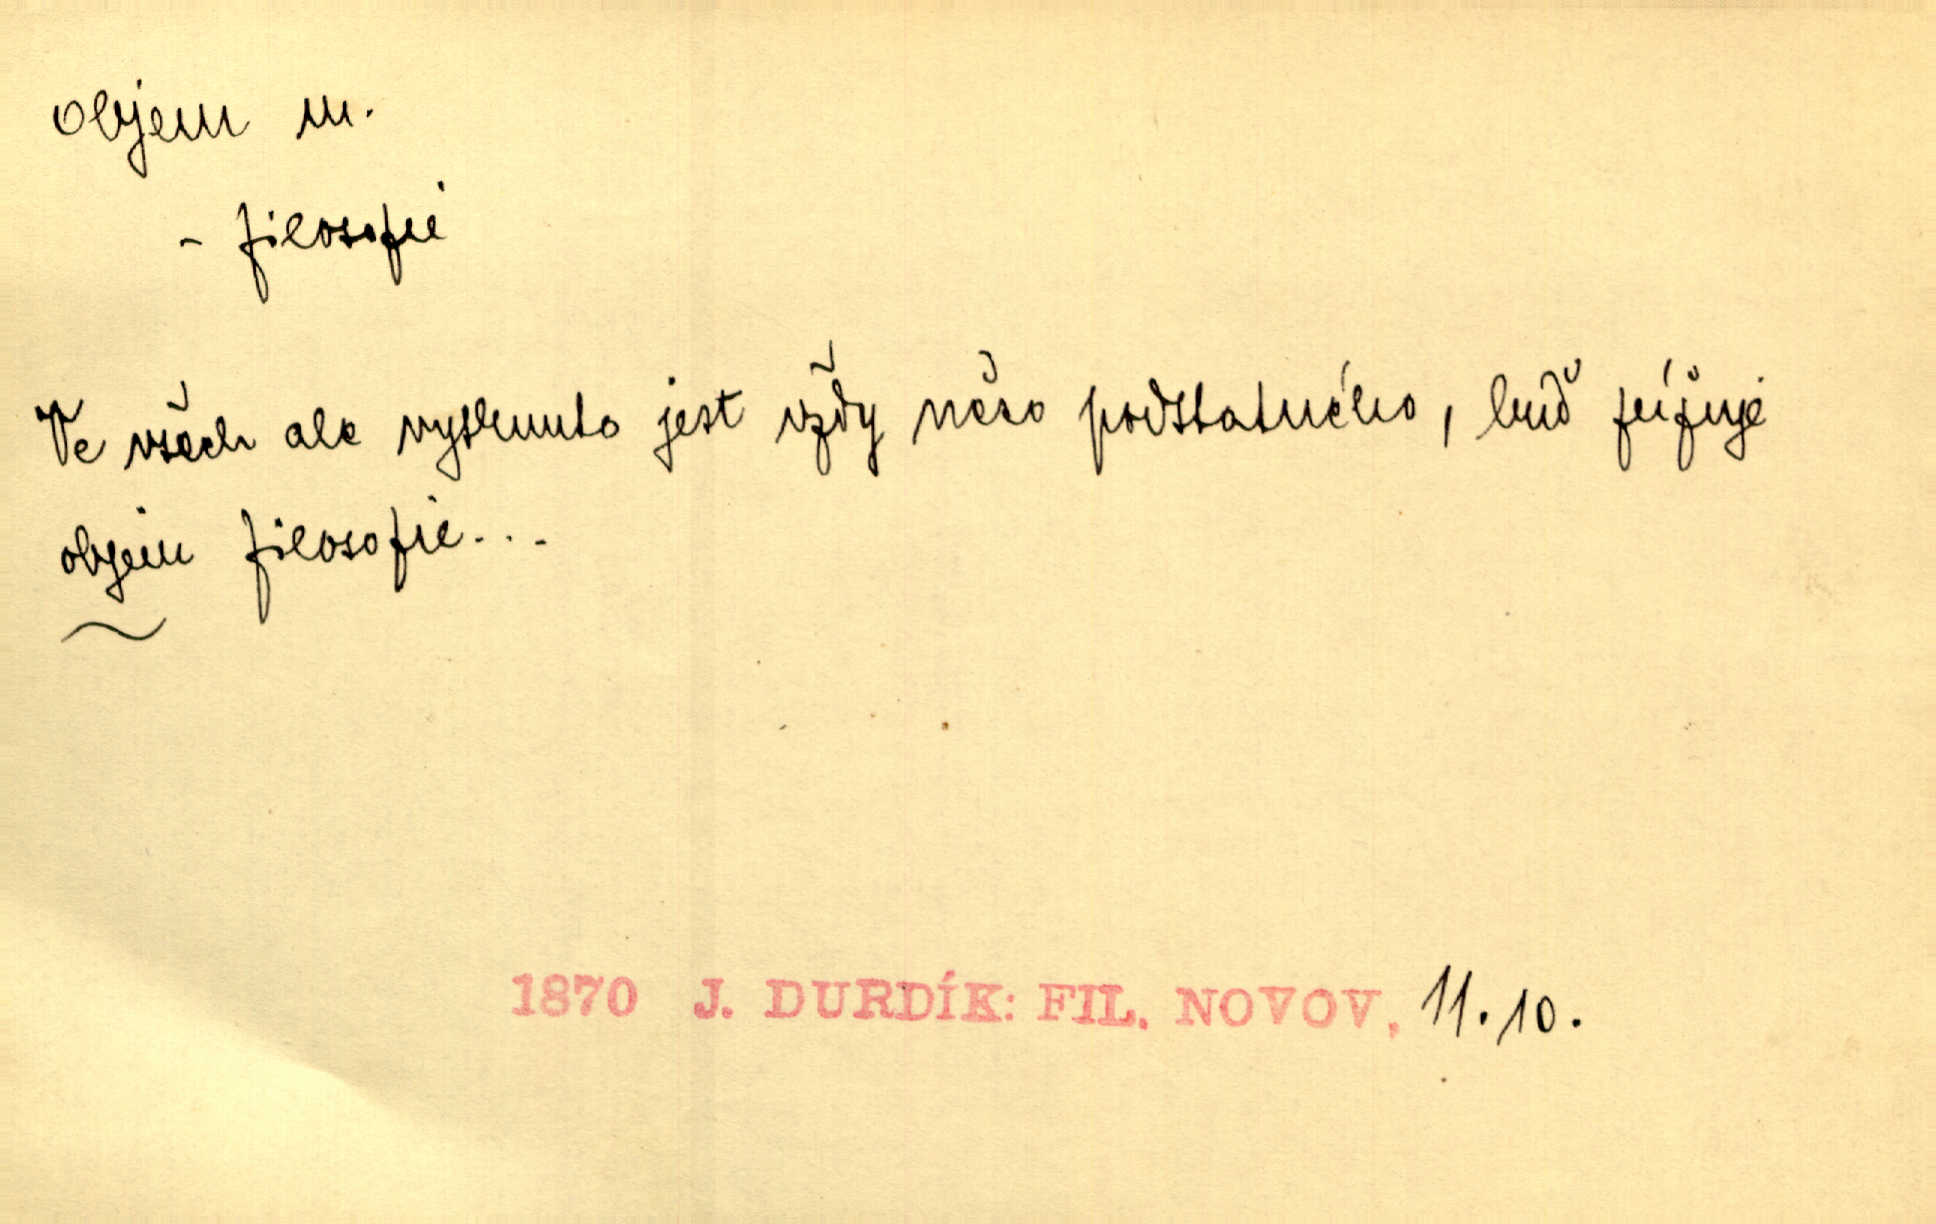 objem m.
- filosofie
Ve všech ale vytknuto jest vždy něco podstatného, buď
objem filosofie...
1870 J. DURDÍK: FIL. NOVOV. 11.10.